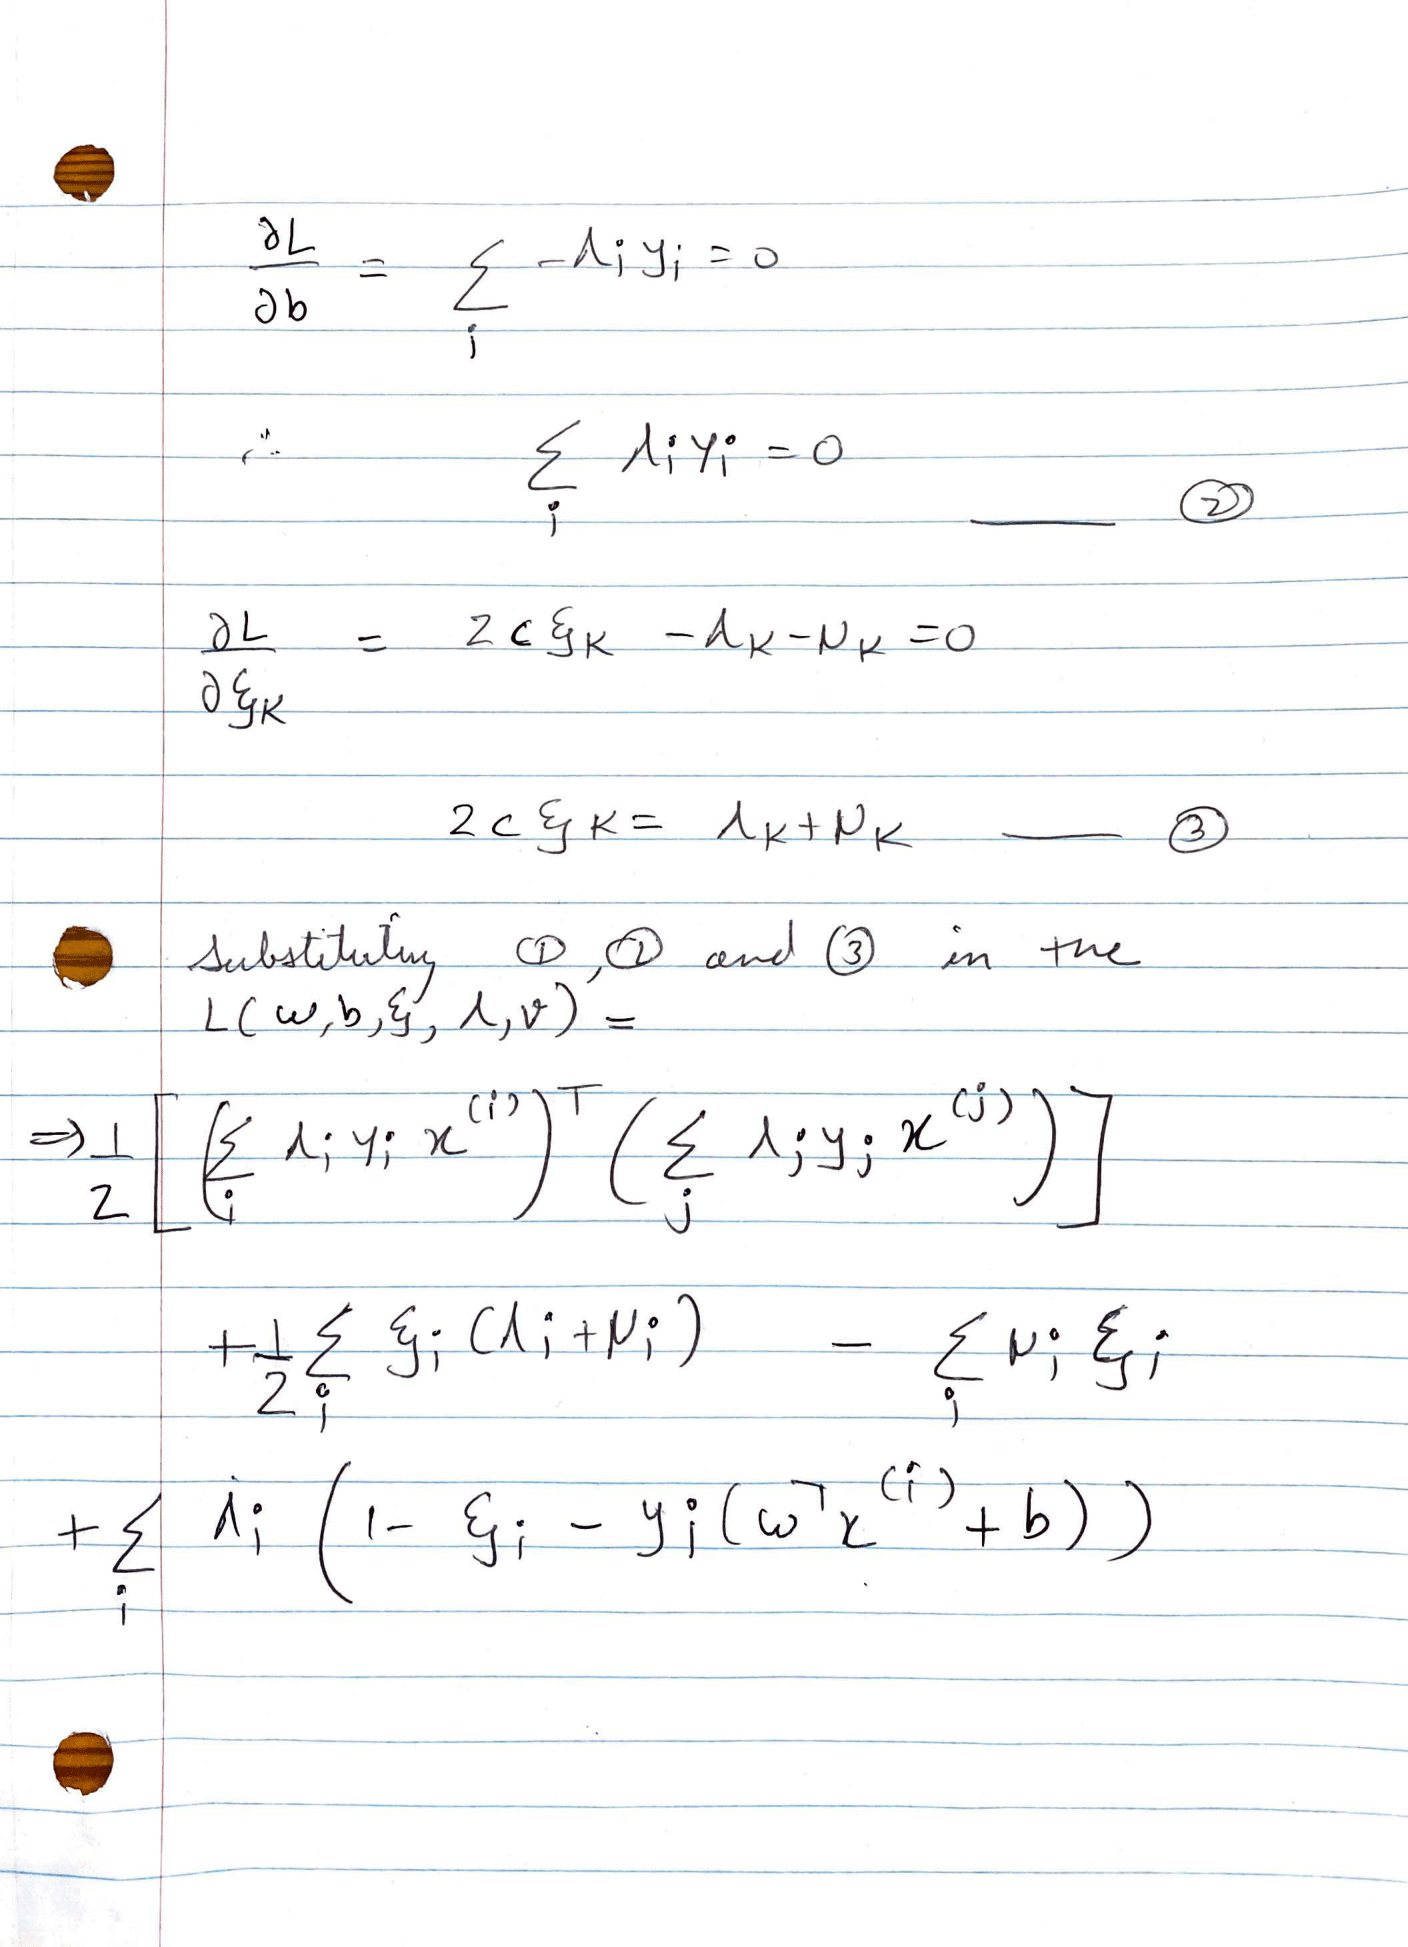 ∂L/∂b = Σ_i -λ_i y_i = 0
∴ Σ_i λ_i y_i = 0 —— ②
∂L/∂ξ_K = 2cξ_K - λ_K - N_K = 0
2cξ_K = λ_K + N_K —— ③
Substituting ①, ② and ③ in the
L(w, b, ξ, λ, v) =
⇒ 1/2 [ (Σ_i λ_i y_i x^(i))^T (Σ_j λ_j y_j x^(j)) ]
+ 1/2 Σ_i ξ_i (λ_i + N_i) - Σ_i N_i ξ_i
+ Σ_i λ_i (1 - ξ_i - y_i (w^T x^(i) + b))